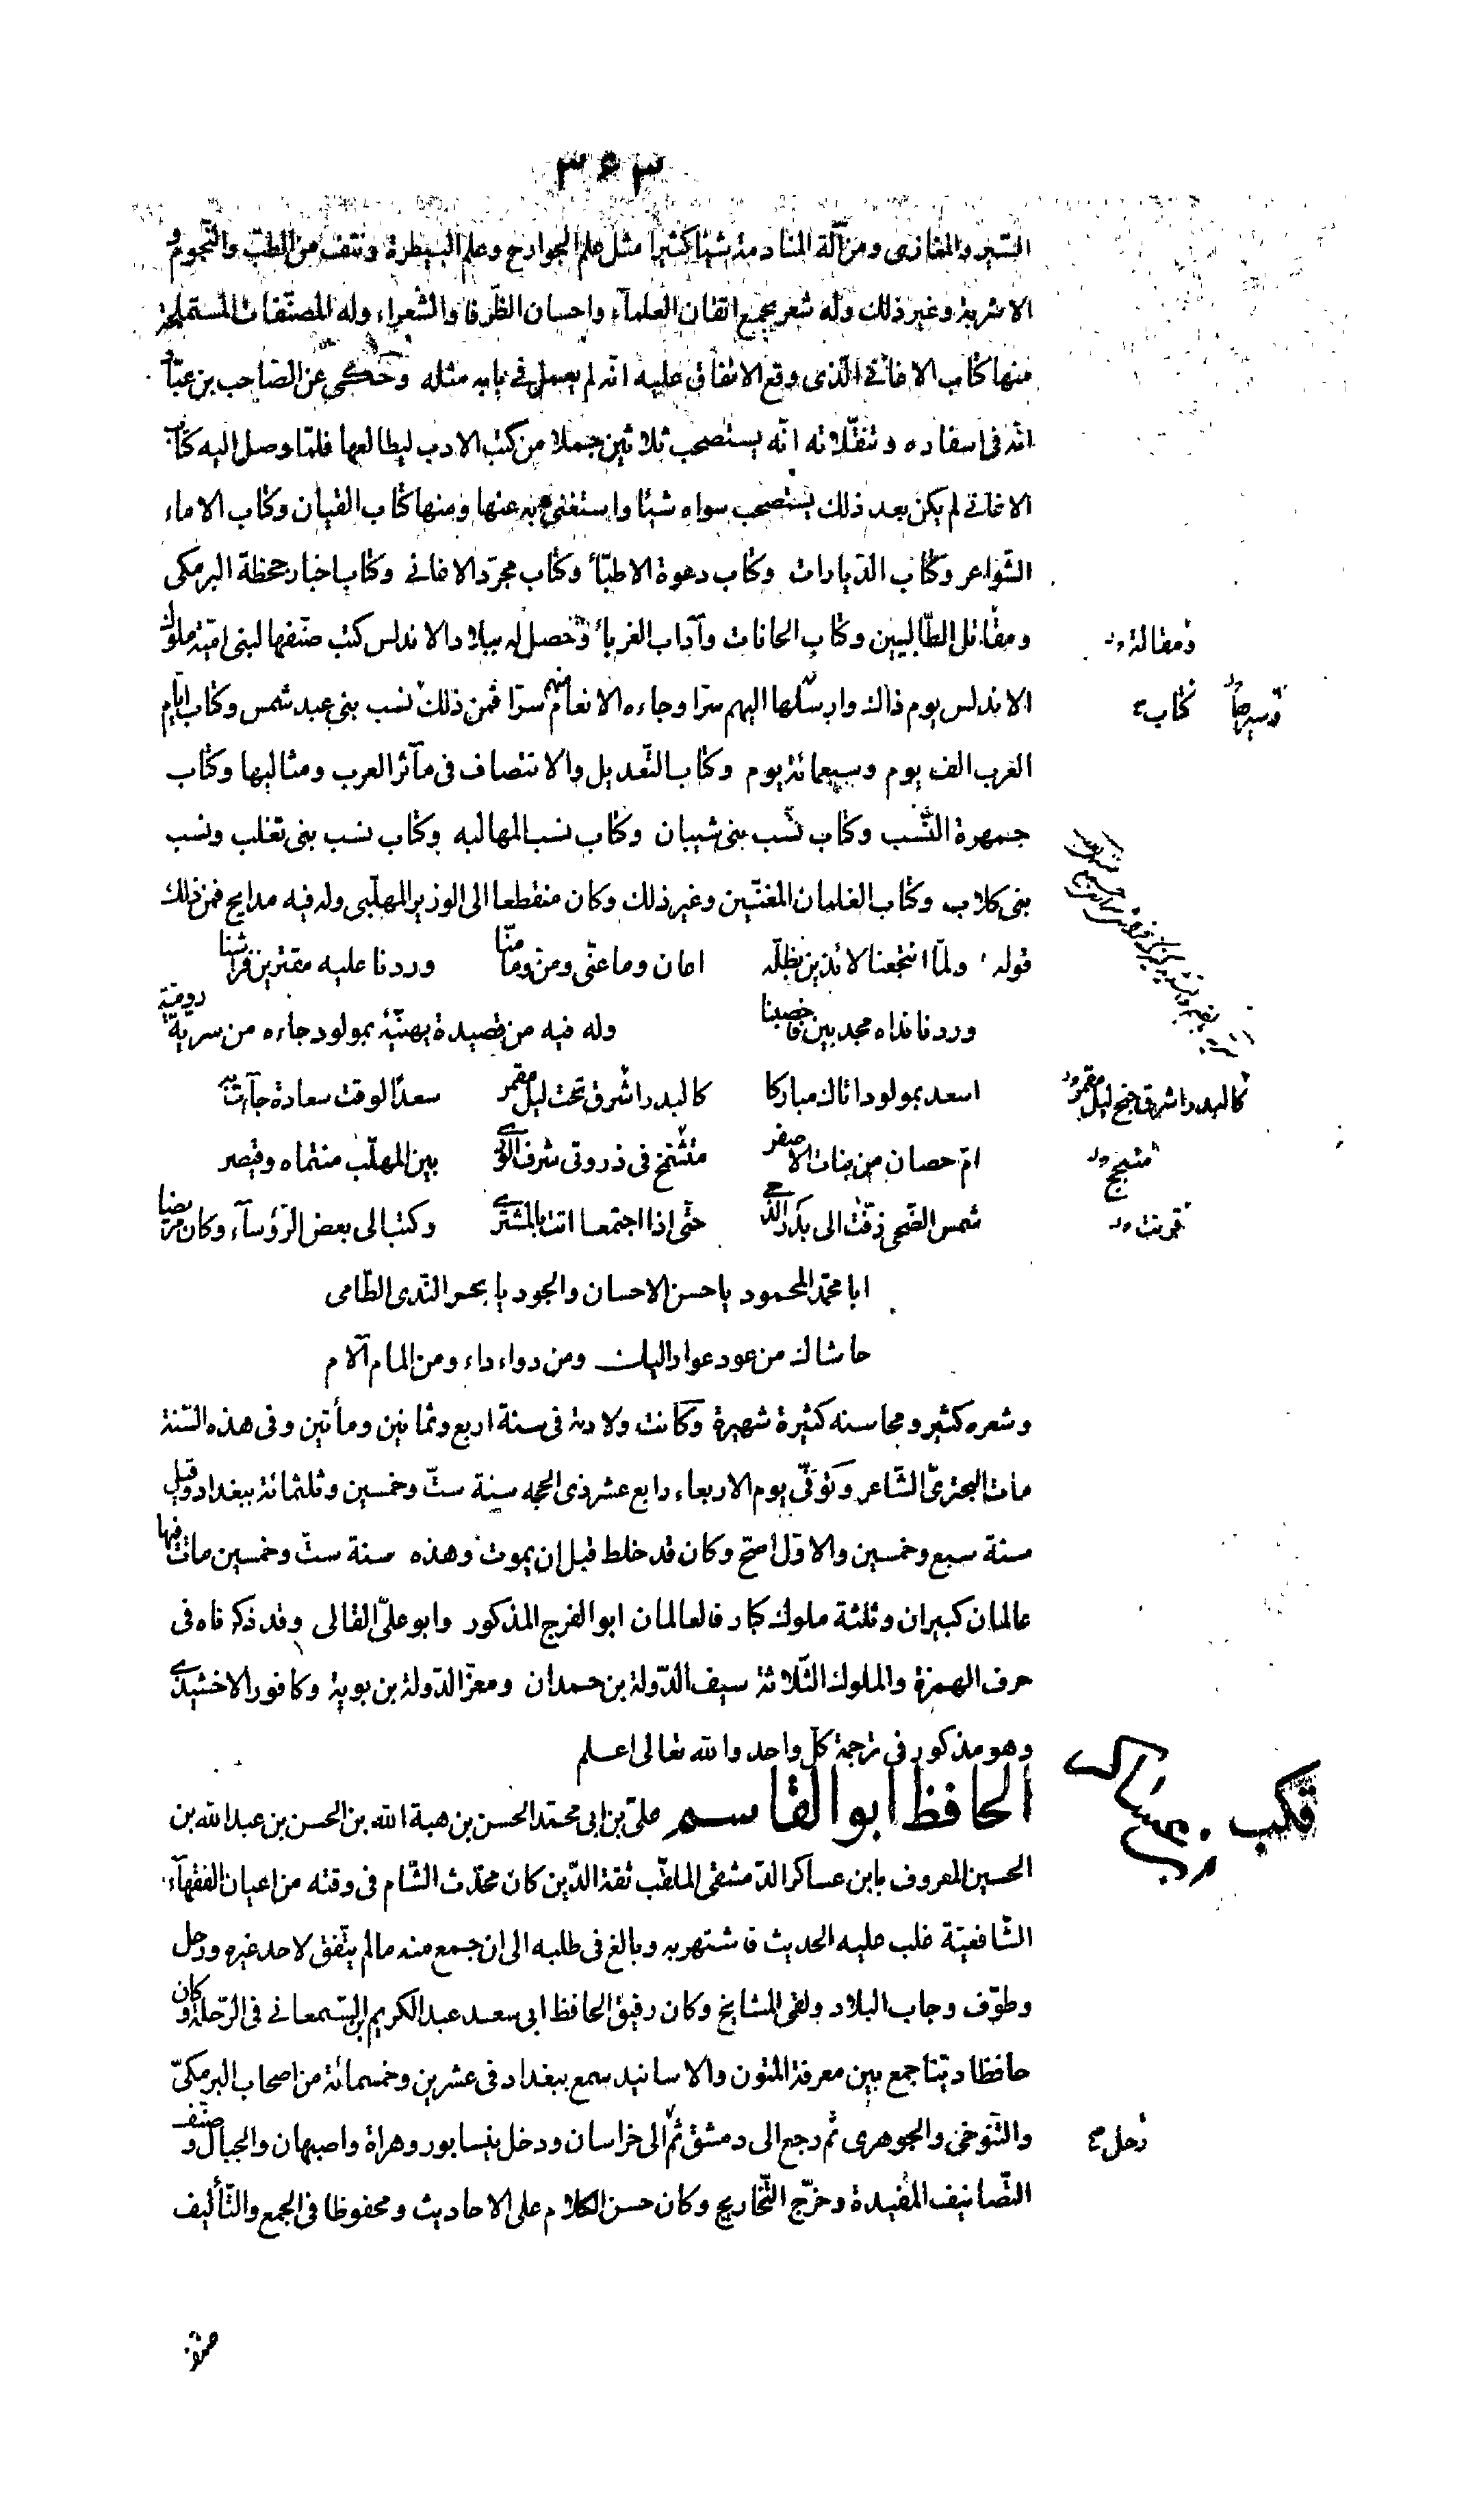 ٣٥٣
السّير والمغازى ومن آلة المنادمة شيئا كثيرا مثل علم الجوارح وعلم البيطرة ونتف من الطبّ والنّجوم و
الاشربة وغير ذلك وله شعر يجمع اتقان العلمآء واحسان الظّرفا والشّعراء وله المصنّفات المستملحة
منها كتاب الاغانى الّذى وقع الاتفاق عليه انّه لم يعمل فى بابه مثله وحكى عن الصّاحب بن عبّاد
انّه فى اسفاره وتنقّلاته انّه يستصحب ثلاثين جملا من كتب الادب ليطالعها فلمّا وصل اليه كتاب
الاغانى لم يكن بعد ذلك يستصحب سواه شيئا واستغنى به عنها ومنها كتاب القيان وكتاب الاماء
الشّواعر وكتاب الدّيارات وكتاب دعوة الاطبّأ وكتاب مجرّد الاغانى وكتاب اخبار جحظة البرمكى
ومقاتل الطّالبيين وكتاب الحانات وآداب الغربأ وحصل له ببلاد الاندلس كتب صنّفها لبنى اميّة ملوك
الاندلس يوم ذاك وارسلها اليهم سرّا وجاءه الانعام منهم سرّا فمن ذلك نسب بنى عبد شمس وكتاب ايّام
العرب الف يوم وسبعمائة يوم وكتاب التّعديل والانتصاف فى مآثر العرب ومثالبها وكتاب
جمهرة النّسب وكتاب نسب بنى شيبان وكتاب نسب المهالبه وكتاب نسب بنى تغلب ونسب
بنى كلاب وكتاب الغلمان المغنّيين وغير ذلك وكان منقطعا الى الوزير المهلّبى وله فيه مدايح فمن ذلك
قوله ولمّا انتجعنا لائذين بظلّه اعان وما عنّى ومنّ وما منّا وردنا عليه مقترين فراشنا
وردنا نداه مجدبين فاخصبنا وله فيه من قصيدة يهنّئه بمولود جاءه من سريّة روميّة
اسعد بمولود اتاك مباركا كالبدر اشرق تحت ليل مقمر سعدا لوقت سعادة جآءت به
امّ حصان من بنات الاصفر متشمّخ فى ذروتى شرف الورى بين المهلّب منتماه وقيصر
شمس الضّحى زفّت الى بدر الدّجى حتّى اذا اجتمعا اتت بالمشترى وكتب الى بعض الرّؤسآء وكان مريضا
ابا محمّد المحمود يا حسن الاحسان والجود يا بحر النّدى الطّامى
حاشاك من عود عوّاد اليك ومن دواء داء ومن المام آلام
وشعره كثير ومحاسنه كثيرة شهيرة وكانت ولادته فى سنة اربع وثمانين ومأتين وفى هذه السّنة
مات البحترىّ الشّاعر وتوفّى يوم الاربعاء رابع عشر ذى الحجه سنة ستّ وخمسين وثلثمائة ببغداد وقيل
سنة سبع وخمسين والاوّل اصحّ وكان قد خلط قبل ان يموت وهذه سنة ستّ وخمسين مات فيها
عالمان كبيران وثلثة ملوك كبار فالعالمان ابو الفرج المذكور وابو علىّ القالى وقد ذكرناه فى
حرف الهمزة والملوك الثّلاثة سيف الدّولة بن حمدان ومعزّ الدّولة بن بويه وكافور الاخشيدى
وهو مذكور فى ترجمة كلّ واحد والله تعالى اعلم
الحافظ ابو القاسم علىّ بن ابى محمّد الحسن بن هبة الله بن الحسن بن عبد الله بن
الحسين المعروف بابن عساكر الدّمشقى الملقّب ثقة الدّين كان محدّث الشّام فى وقته من اعيان الفقهآء
الشّافعيّة غلب عليه الحديث فاشتهر به وبالغ فى طلبه الى ان جمع منه ما لم يتّفق لاحد غيره ورحل
وطوّف وجاب البلاد ولقى المشايخ وكان رفيق الحافظ ابى سعد عبد الكريم بن السّمعانى فى الرّحلة وكان
حافظا ديّنا جمع بين معرفة المتون والاسانيد سمع ببغداد فى عشرين وخمسمائة من اصحاب البرمكىّ
والتّنوخى والجوهرى ثمّ رجع الى دمشق ثمّ الى خراسان ودخل نيسابور وهراة واصبهان والجبال وصنّف
التّصانيف المفيدة وخرّج التّخاريج وكان حسن الكلام على الاحاديث ومحفوظا فى الجمع والتّأليف
ومقالة
كتاب
كالبدر اشرق جنح ليل مقمر
متبجح
قرنت
ابن عساكر
رحل